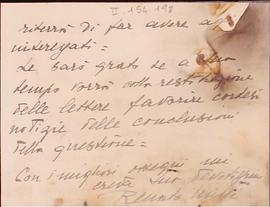 II 154 198
riterrà di far avere agli
interessati =
Le sarò grato se a suo
tempo vorrà colla restituzione
delle lettere favorire cortesi
notizie delle conclusioni
della questione =
Con i migliori ossequi mi
creda Suo
Renato